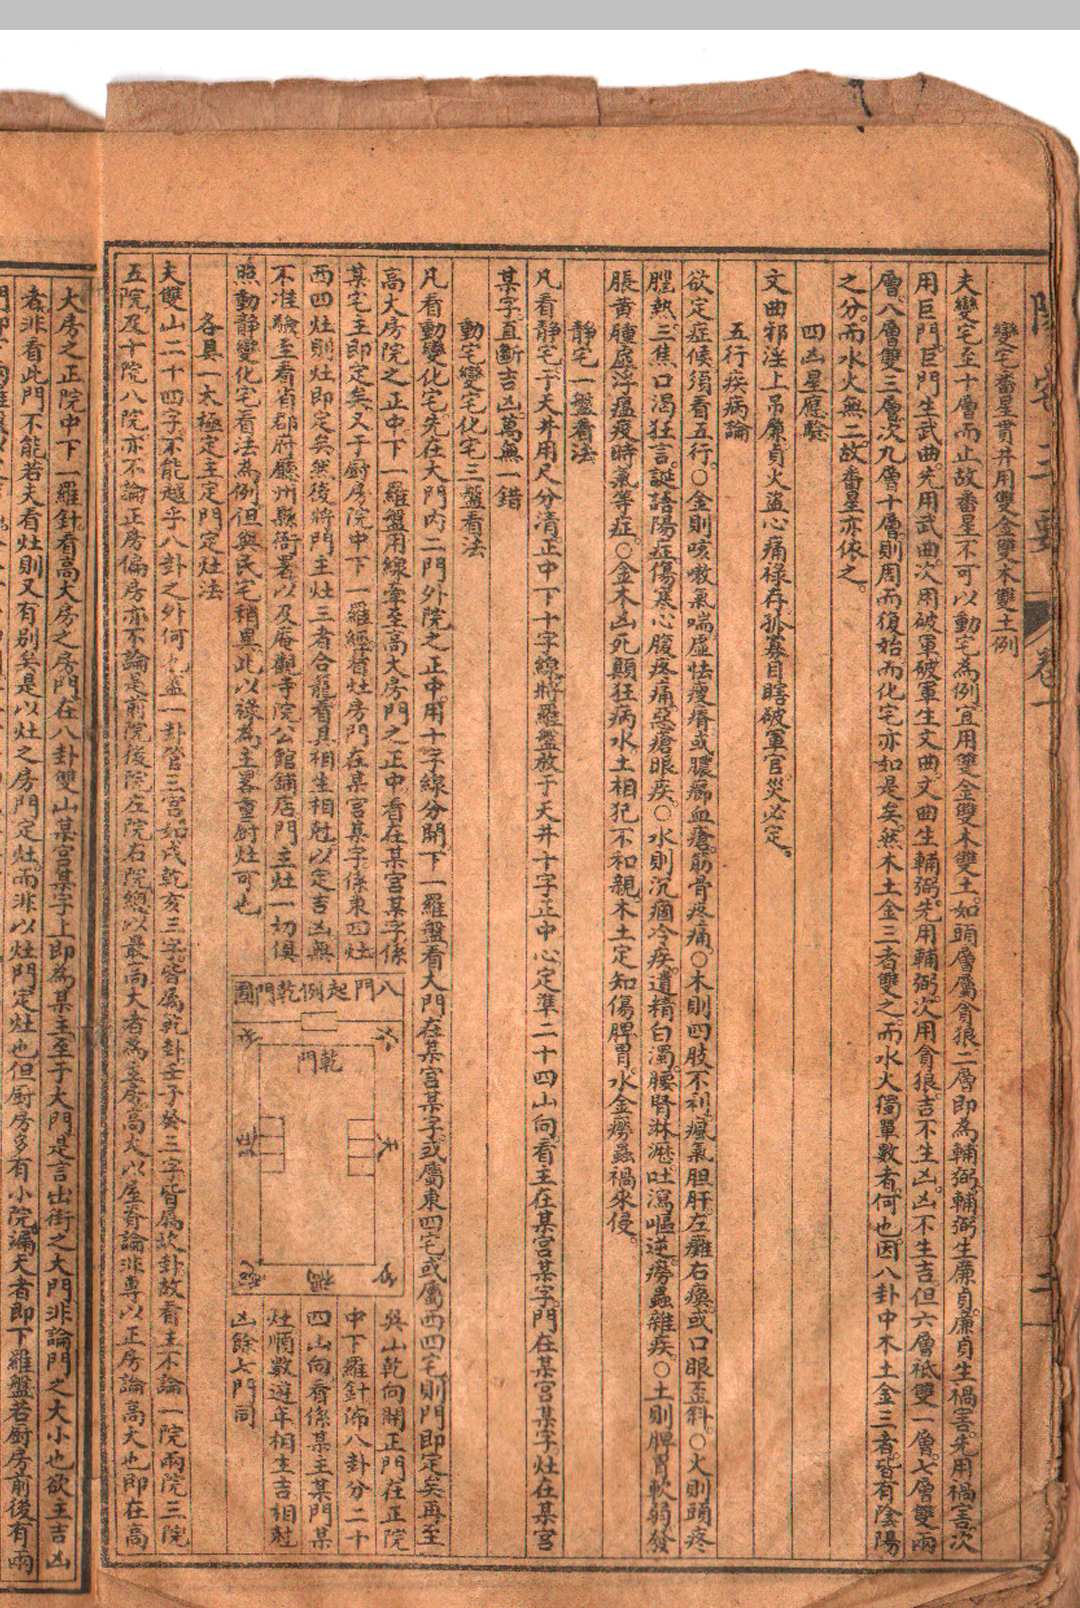 陽宅三要 卷一 二
變宅番星貫井用雙金雙木雙土例
夫變宅至十層而止故番星不可以動宅為例宜用雙金雙木雙土如頭層屬貪狼二層即為輔弼輔弼生廉貞廉貞生禍害先用禍害次
用巨門巨門生武曲先用武曲次用破軍破軍生文曲文曲生輔弼先用輔弼次用貪狼吉不生凶凶不生吉但六層祗雙一層七層雙兩
層八層雙三層次九層十層則周而復始而化宅亦如是矣然木土金三者雙之而水火獨單數者何也因八卦中木土金三者皆有陰陽
之分而水火無二故番星亦依之
四凶星應驗
文曲邪淫上吊廉貞火盜心痛祿存孤寡目瞎破軍官災必定
五行疾病論
欲定症候須看五行○金則咳嗽氣喘虛怯瘦瘠或膿痲血瘡筋骨疼痛○木則四肢不利瘋氣胆肝左癱右瘓或口眼歪斜○火則頭疼
膛熱三焦口渴狂言誕語陽症傷寒心腹疼痛惡瘡眼疾○水則沉痼冷疾遺精白濁腰腎淋瀝吐瀉嘔逆癆蟲雜疾○土則脾胃軟弱發
脹黃腫虛浮瘟疫時氣等症○金木凶死顛狂病水土相犯不和親木土定知傷脾胃水金癆蟲禍來侵
靜宅一盤看法
凡看靜宅于天井用尺分清正中下十字線將羅盤放于天井十字正中心定準二十四山向看主在某宮某字門在某宮某字灶在某宮
某字直斷吉凶萬無一錯
動宅變宅化宅三盤看法
凡看動變化宅先在大門內二門外院之正中用十字線分開下一羅盤看大門在某宮某字或屬東四宅或屬西四宅則門即定矣再至
高大房院之正中下一羅盤用線牽至高大房門之正中看在某宮某字係
某宅主即定矣又于厨房院中下一羅經看灶房門在某宮某字係東四灶
西四灶則灶即定矣然後將門主灶三者合籠看其相生相尅以定吉凶無
不准驗至看省郡府廳州縣衙署以及庵觀寺院公館舖店門主灶一切俱
照動靜變化宅看法為例但與民宅稍異此以祿為主畧重厨灶可也
八門起例乾門圖
乾門
六
天
五
禍
絕
延
生
巽山乾向開正門在正院
中下羅針佈八卦分二十
四山向看係某主某門某
灶順數遊年相生吉相尅
凶餘七門同
各具一太極定主定門定灶法
夫雙山二十四字不能越乎八卦之外何也蓋一卦管三宮如戌乾亥三字皆屬乾卦壬子癸三字皆屬坎卦故看主不論一院兩院三院
五院及十院八院亦不論正房偏房亦不論是前院後院左院右院總以最高大者為主房高大以屋脊論非專以正房論高大也即在高
大房之正院中下一羅針看高大房之房門在八卦雙山某宮某字上即為某主至于大門是言出街之大門非論門之大小也欲主吉凶
者非看此門不能若夫看灶則又有別矣是以灶之房門定灶而非以灶門定灶也但厨房多有小院漏天者即下羅盤若厨房前後有兩